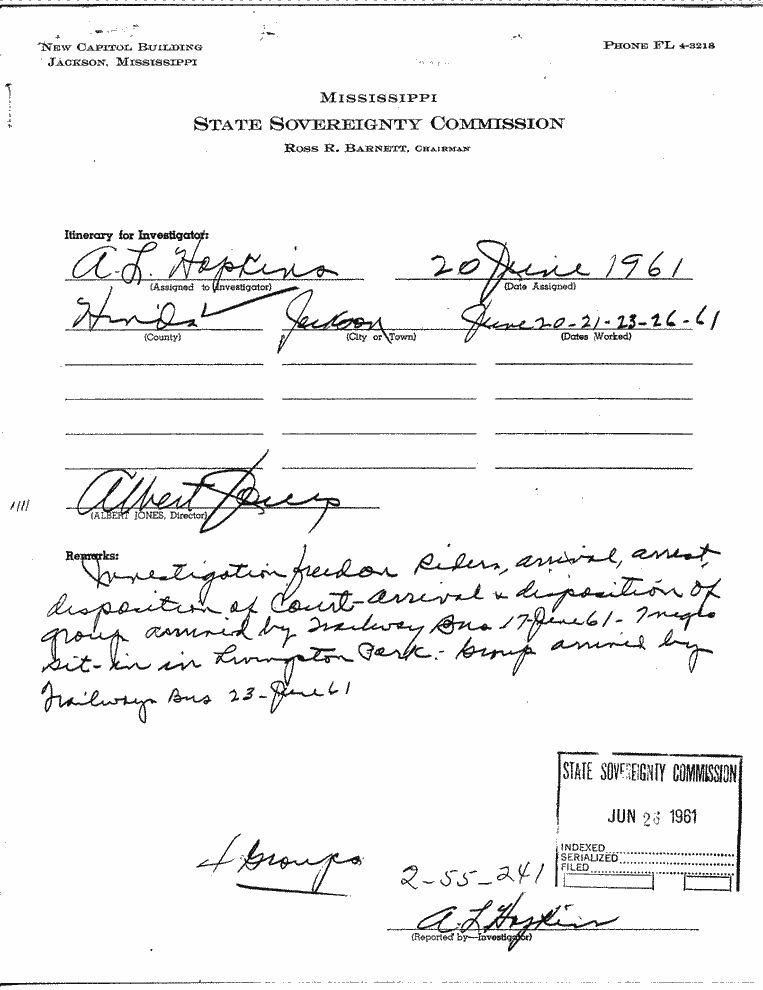 NEW CAPITOL BUILDING
JACKSON, MISSISSIPPI
PHONE FL 4-3218
MISSISSIPPI
STATE SOVEREIGNTY COMMISSION
ROSS R. BARNETT, CHAIRMAN
Itinerary for Investigator:
A. L. Hopkins 20 June 1961
(Assigned to Investigator) (Date Assigned)
Hinds Jackson June 20-21-23-26-61
(County) (City or Town) (Dates Worked)
Albert Jones
(ALBERT JONES, Director)
Remarks:
Investigation freedom Riders, arrival, arrest,
disposition of Court-arrival & disposition of
group arrived by Trailway Bus 17-June 61- 7 negro
sit-in in Livingston Park.- Group arrived by
Trailways Bus 23-June 61
STATE SOVEREIGNTY COMMISSION
JUN 26 1961
INDEXED
SERIALIZED
FILED
4 Groups
2-55-241
A L Hopkins
(Reported by—Investigator)